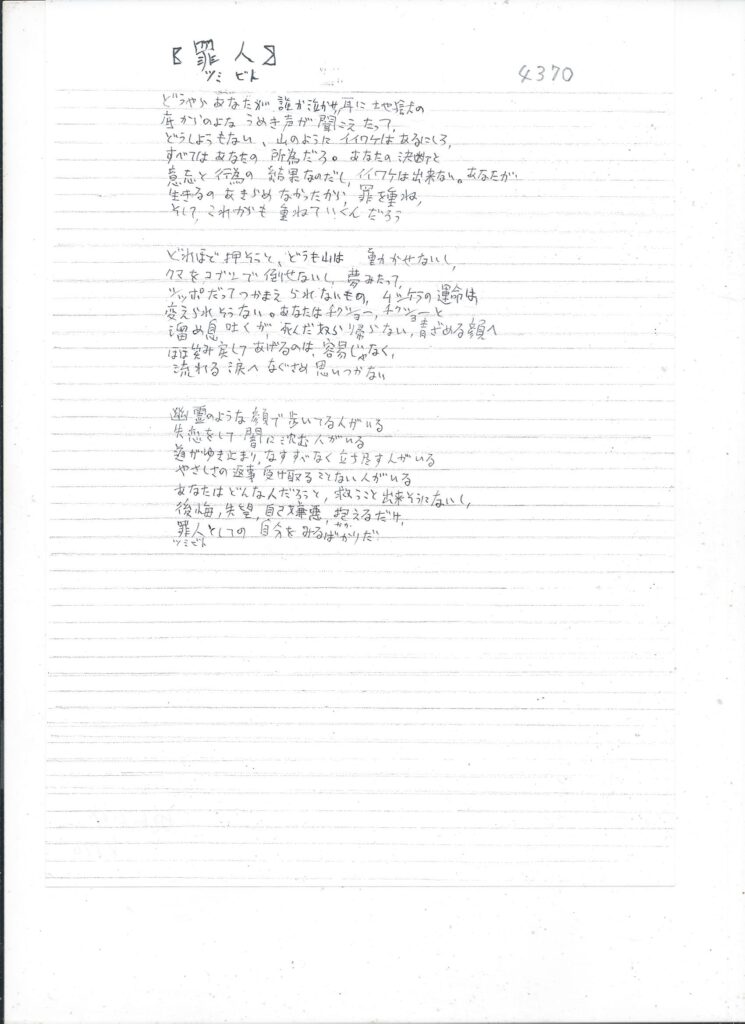 【罪人】
ツミビト
4370
どうやらあなたが誰か泣かせ、耳に地獄の
底からのよな うめき声が聞こえたって、
どうしようもない、山のようにイイワケはあるにしろ、
すべてはあなたの所為だろ。あなたの決断と
意志と行為の結果なのだし、イイワケは出来ない。あなたが
生きるのあきらめなかったから、罪を重ね、
そして、これからも重ねていくんだろう
どれほど押そうと、どうも山は 動かせないし、
クマをコブシで倒せないし、夢みたって、
シッポだってつかまえられないもの、ムシケラの運命は
変えられそうない。あなたはチクショー、チクショーと
溜め息吐くが、死んだ奴ら帰らない、青ざめる顔へ
ほほ笑み戻してあげるのは、容易じゃなく、
流れる涙へなぐさめ思いつかない
幽霊のような顔で歩いてる人がいる
失恋をして闇に沈む人がいる
道がゆき止まり、なすすべなく立ち尽す人がいる
やさしさの返事受け取ることない人がいる
あなたはどんな人だろうと、救うこと出来そうにないし、
後悔、失望、自己嫌悪、抱えるだけ、
罪人としての自分をみるばかりだ
ツミビト